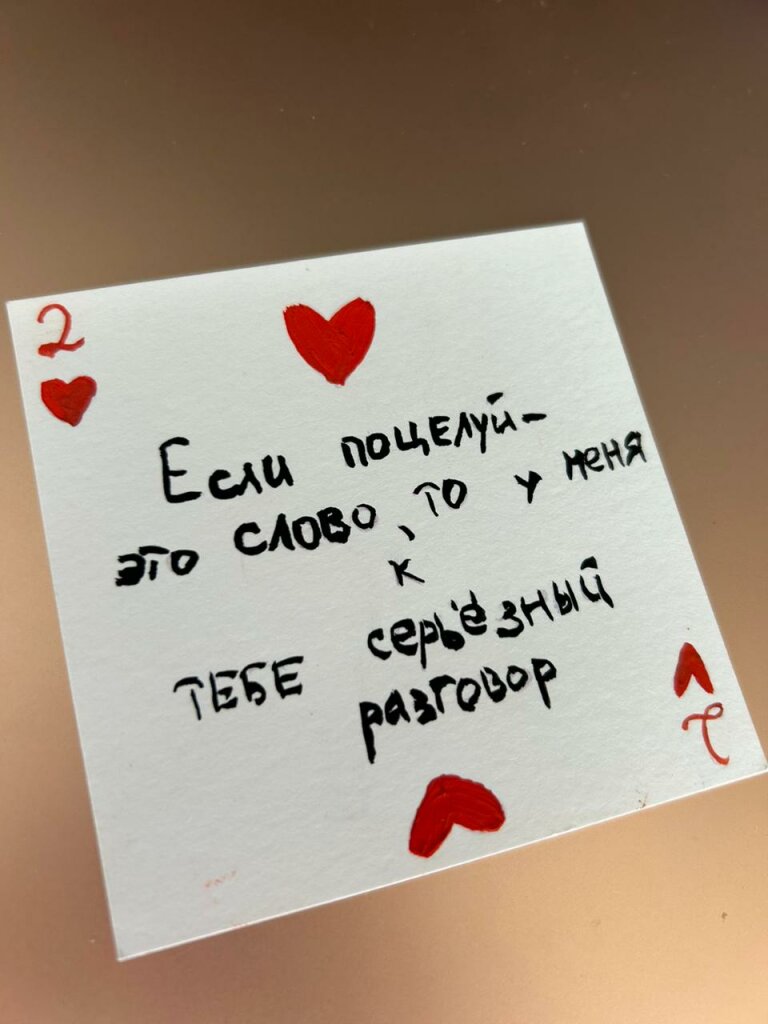 2
Если поцелуй-
это слово, то у меня
к
тебе серьёзный
разговор
2